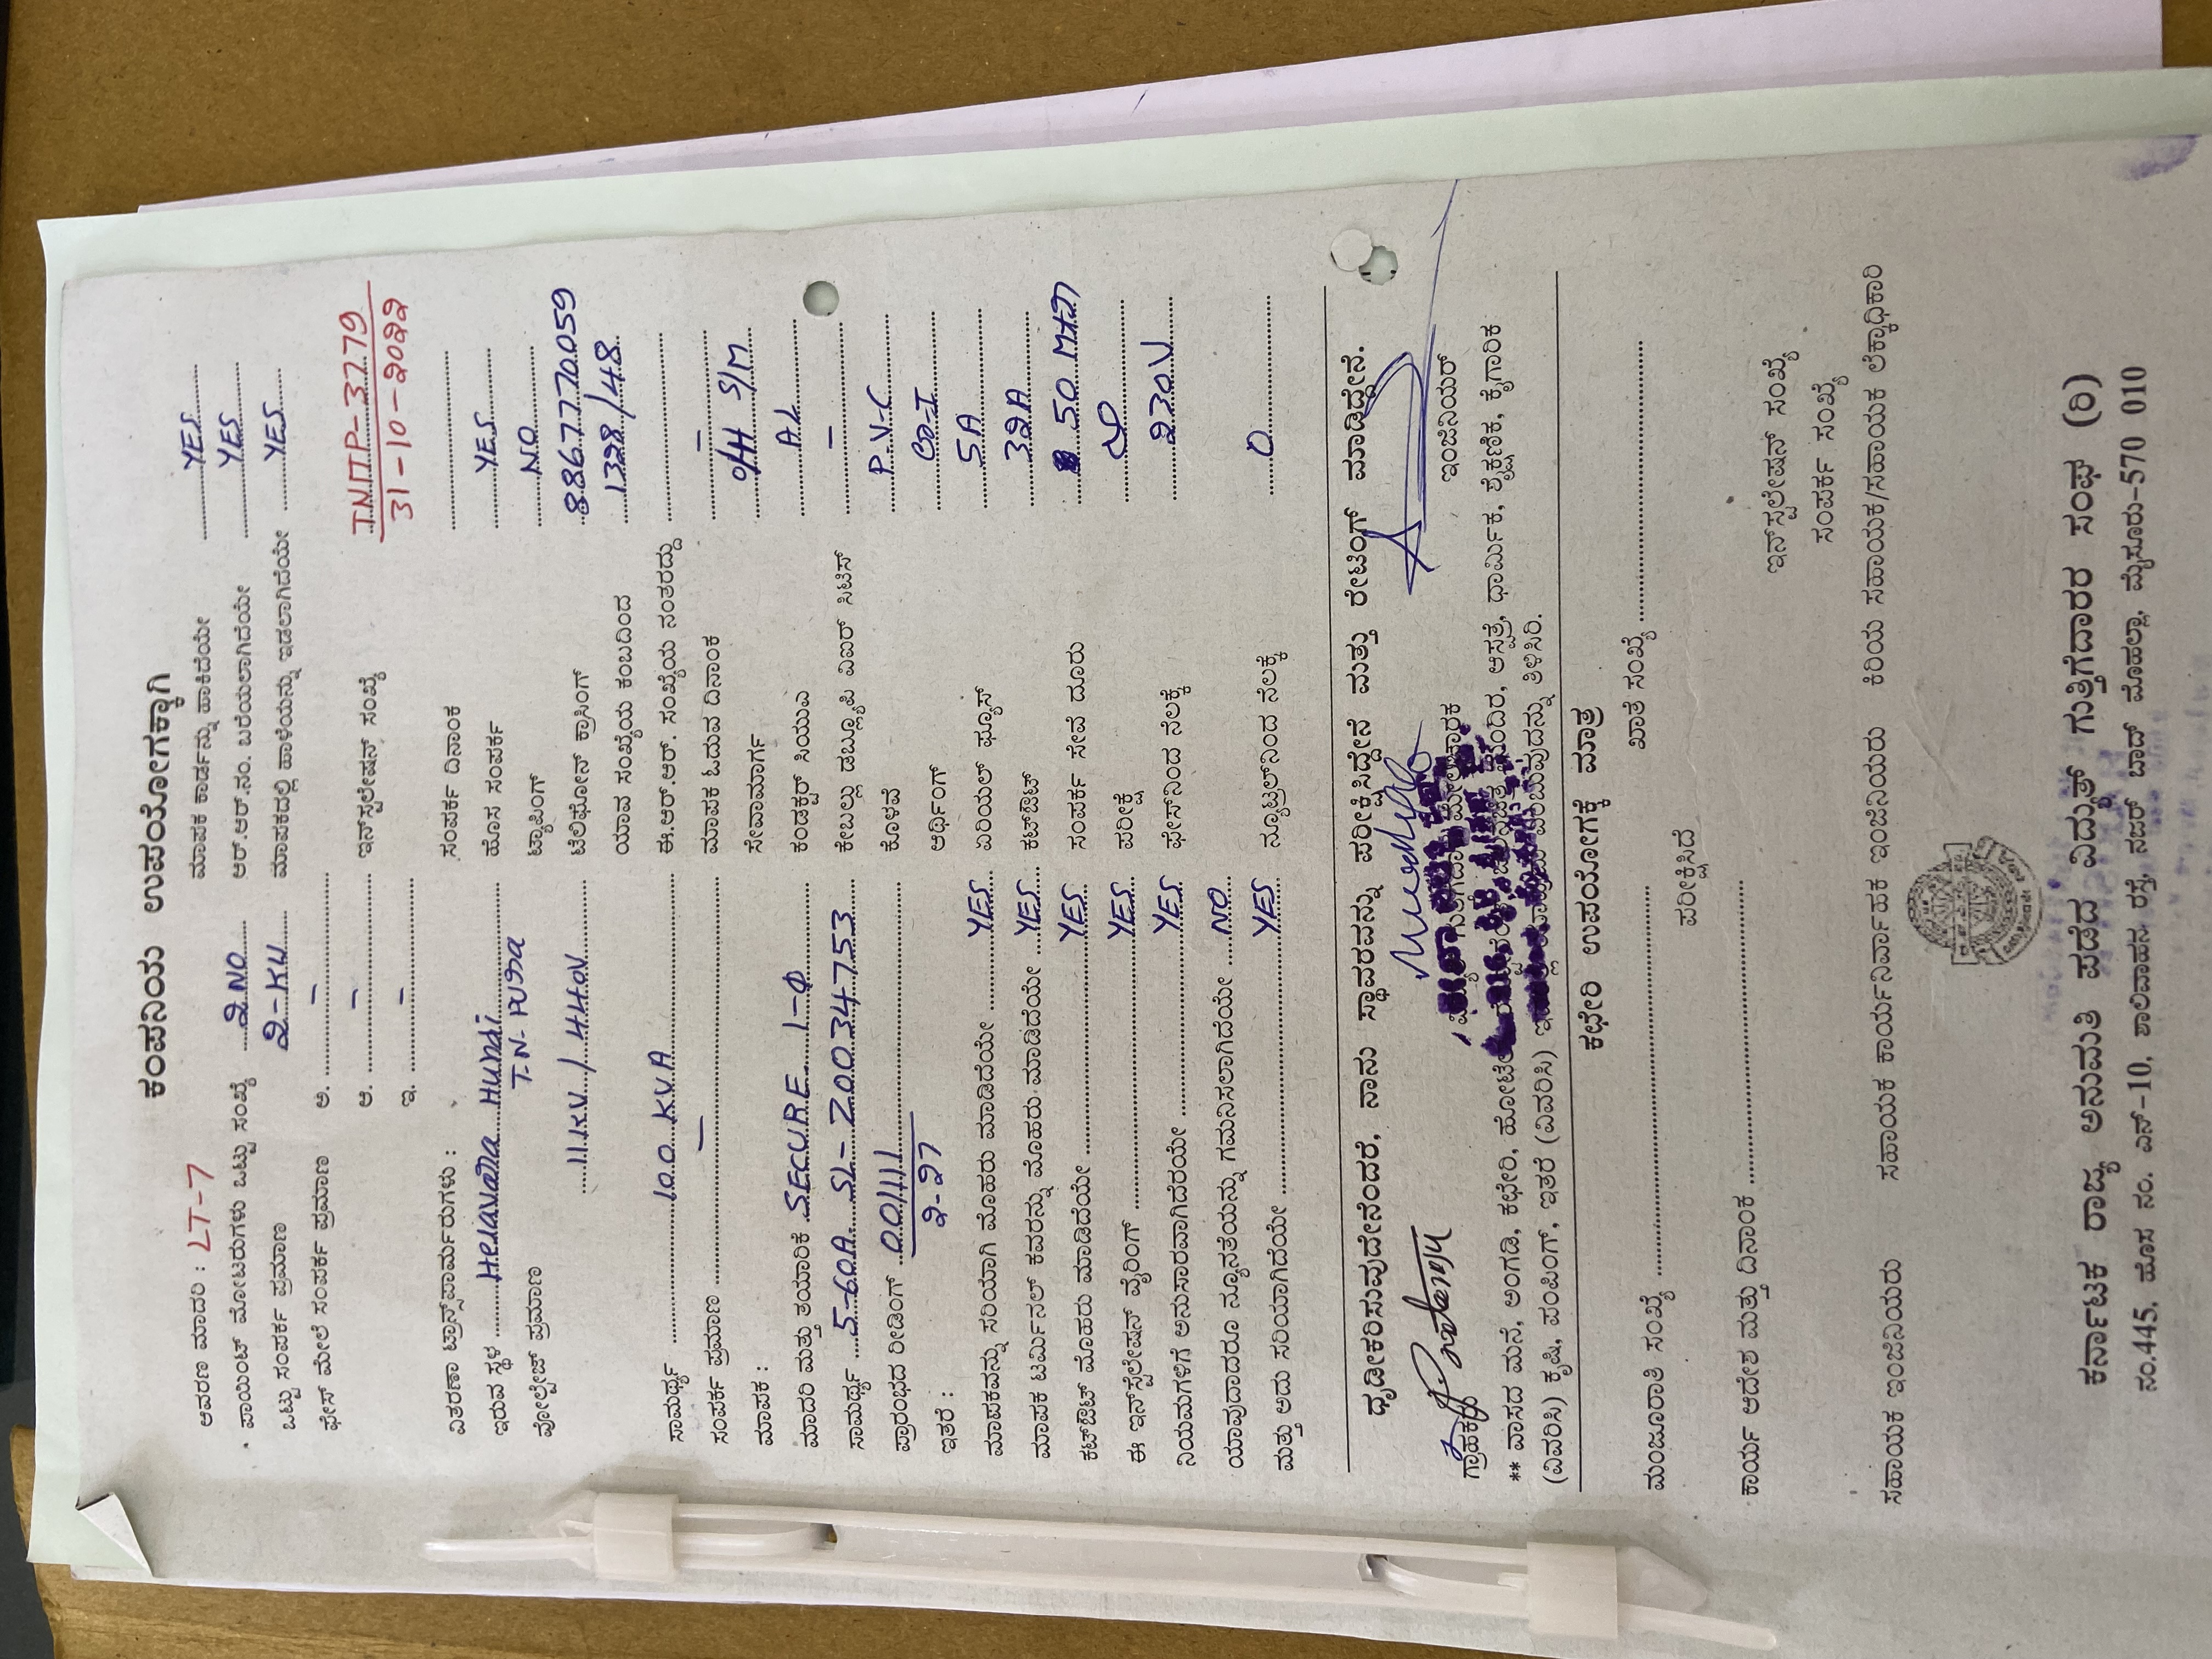 ಕಂಪನಿಯ ಉಪಯೋಗಕ್ಕಾಗಿ
ಆವರಣ ಮಾದರಿ : LT-7 ಮಾಪಕ ಕಾರ್ಡನ್ನು ಹಾಕಿದೆಯೇ YES
ಪಾಯಿಂಟ್ ಮೋಟರುಗಳು ಒಟ್ಟು ಸಂಖ್ಯೆ 2 NO ಆರ್.ಆರ್.ನಂ. ಬರೆಯಲಾಗಿದೆಯೇ YES
ಒಟ್ಟು ಸಂಪರ್ಕ ಪ್ರಮಾಣ 2-KW ಮಾಪಕದಲ್ಲಿ ಹಾಳೆಯನ್ನು ಇಡಲಾಗಿದೆಯೇ YES
ಫೇಸ್ ಮೇಲೆ ಸಂಪರ್ಕ ಪ್ರಮಾಣ ಅ. –
ಆ. – ಇನ್‌ಸ್ಟಲೇಷನ್ ಸಂಖ್ಯೆ TNTP-3779
ಇ. – 31-10-2022
ವಿತರಣಾ ಟ್ರಾನ್ಸ್‌ಫಾರ್ಮರುಗಳು : ಸಂಪರ್ಕ ದಿನಾಂಕ
ಇರುವ ಸ್ಥಳ Helavara Hundi ಹೊಸ ಸಂಪರ್ಕ YES
T.N-Pura ಟ್ಯಾಪಿಂಗ್ NO
ವೋಲ್ಟೇಜ್ ಪ್ರಮಾಣ 11KV / 440V ಟೆಲಿಫೋನ್ ಕ್ರಾಸಿಂಗ್ 8867770059
ಯಾವ ಸಂಖ್ಯೆಯ ಕಂಬದಿಂದ 1328/48
ಸಾಮರ್ಥ್ಯ 100 KVA ಈ.ಆರ್.ಆರ್. ಸಂಖ್ಯೆಯ ನಂತರದ್ದು
ಸಂಪರ್ಕ ಪ್ರಮಾಣ – ಮಾಪಕ ಓದುವ ದಿನಾಂಕ –
ಮಾಪಕ : ಸೇವಾಮಾರ್ಗ O/H S/M
ಮಾದರಿ ಮತ್ತು ತಯಾರಿಕೆ SECURE 1-Φ ಕಂಡಕ್ಟರ್ ಸಿಯುಎ AL
ಸಾಮರ್ಥ್ಯ 5-60A SL-Z0034753 ಕೇಬಲ್ಲು ಡಬ್ಲ್ಯೂಪಿ ವಿಐಆರ್ ಸಿಟಿಸ್ –
ಪ್ರಾರಂಭದ ರೀಡಿಂಗ್ 00111 ಕೊಳವೆ P.V.C
2-27
ಇತರೆ : ಆರ್ಥಿಂಗ್
ಮಾಪಕವನ್ನು ಸರಿಯಾಗಿ ಮೊಹರು ಮಾಡಿದೆಯೇ YES ಏರಿಯಲ್ ಫ್ಯೂಸ್ 5A
ಮಾಪಕ ಟರ್ಮಿನಲ್ ಕವರನ್ನು ಮೊಹರು ಮಾಡಿದೆಯೇ YES ಕಟ್‌ಔಟ್ 32A
ಕಟ್‌ಔಟ್ ಮೊಹರು ಮಾಡಿದೆಯೇ YES ಸಂಪರ್ಕ ಸೇವೆ ದೂರು 50
ಈ ಇನ್‌ಸ್ಟಲೇಷನ್ ವೈರಿಂಗ್ YES ಪರೀಕ್ಷೆ
ನಿಯಮಗಳಿಗೆ ಅನುಸಾರವಾಗಿದೆಯೇ YES ಫೇಸ್‌ನಿಂದ ನೆಲಕ್ಕೆ 230V
ಯಾವುದಾದರೂ ನ್ಯೂನತೆಯನ್ನು ಗಮನಿಸಲಾಗಿದೆಯೇ NO
ಮತ್ತು ಅದು ಸರಿಯಾಗಿದೆಯೇ YES ನ್ಯೂಟ್ರಲ್‌ನಿಂದ ನೆಲಕ್ಕೆ 0
ದೃಡೀಕರಿಸುವುದೇನೆಂದರೆ, ನಾನು ಸ್ಥಾವರವನ್ನು ಪರೀಕ್ಷಿಸಿದ್ದೇನೆ ಮತ್ತು ರೇಟಿಂಗ್ ಮಾಡಿದ್ದೇನೆ.
ಗ್ರಾಹಕರು ಇಂಜಿನಿಯರ್
** ವಾಸದ ಮನೆ, ಅಂಗಡಿ, ಕಛೇರಿ, ಹೋಟೆಲ್ ಮಂದಿರ, ಆಸ್ಪತ್ರೆ, ಧಾರ್ಮಿಕ, ಶೈಕ್ಷಣಿಕ, ಕೈಗಾರಿಕ
(ವಿವರಿಸಿ) ಕೃಷಿ, ಪಂಪಿಂಗ್, ಇತರೆ (ವಿವರಿಸಿ) ಎಂಬುವುದನ್ನು ತಿಳಿಸಿರಿ.
ಕಛೇರಿ ಉಪಯೋಗಕ್ಕೆ ಮಾತ್ರ
ಮಂಜೂರಾತಿ ಸಂಖ್ಯೆ ಖಾತೆ ಸಂಖ್ಯೆ
ಪರೀಕ್ಷಿಸಿದೆ
ಕಾರ್ಯ ಆದೇಶ ಮತ್ತು ದಿನಾಂಕ ಇನ್‌ಸ್ಟಲೇಷನ್ ಸಂಖ್ಯೆ
ಸಂಪರ್ಕ ಸಂಖ್ಯೆ
ಸಹಾಯಕ ಇಂಜಿನಿಯರು ಸಹಾಯಕ ಕಾರ್ಯನಿರ್ವಾಹಕ ಇಂಜಿನಿಯರು ಕಿರಿಯ ಸಹಾಯಕ/ಸಹಾಯಕ ಲೆಕ್ಕಾಧಿಕಾರಿ
ಕರ್ನಾಟಕ ರಾಜ್ಯ ಅನುಮತಿ ಪಡೆದ ವಿದ್ಯುತ್ ಗುತ್ತಿಗೆದಾರರ ಸಂಘ (ರಿ)
ನಂ.445, ಹೊಸ ನಂ. ಎನ್-10, ಶಾಲಿವಾಹನ ರಸ್ತೆ, ನಜರ್ ಬಾದ್ ಮೊಹಲ್ಲಾ, ಮೈಸೂರು-570 010